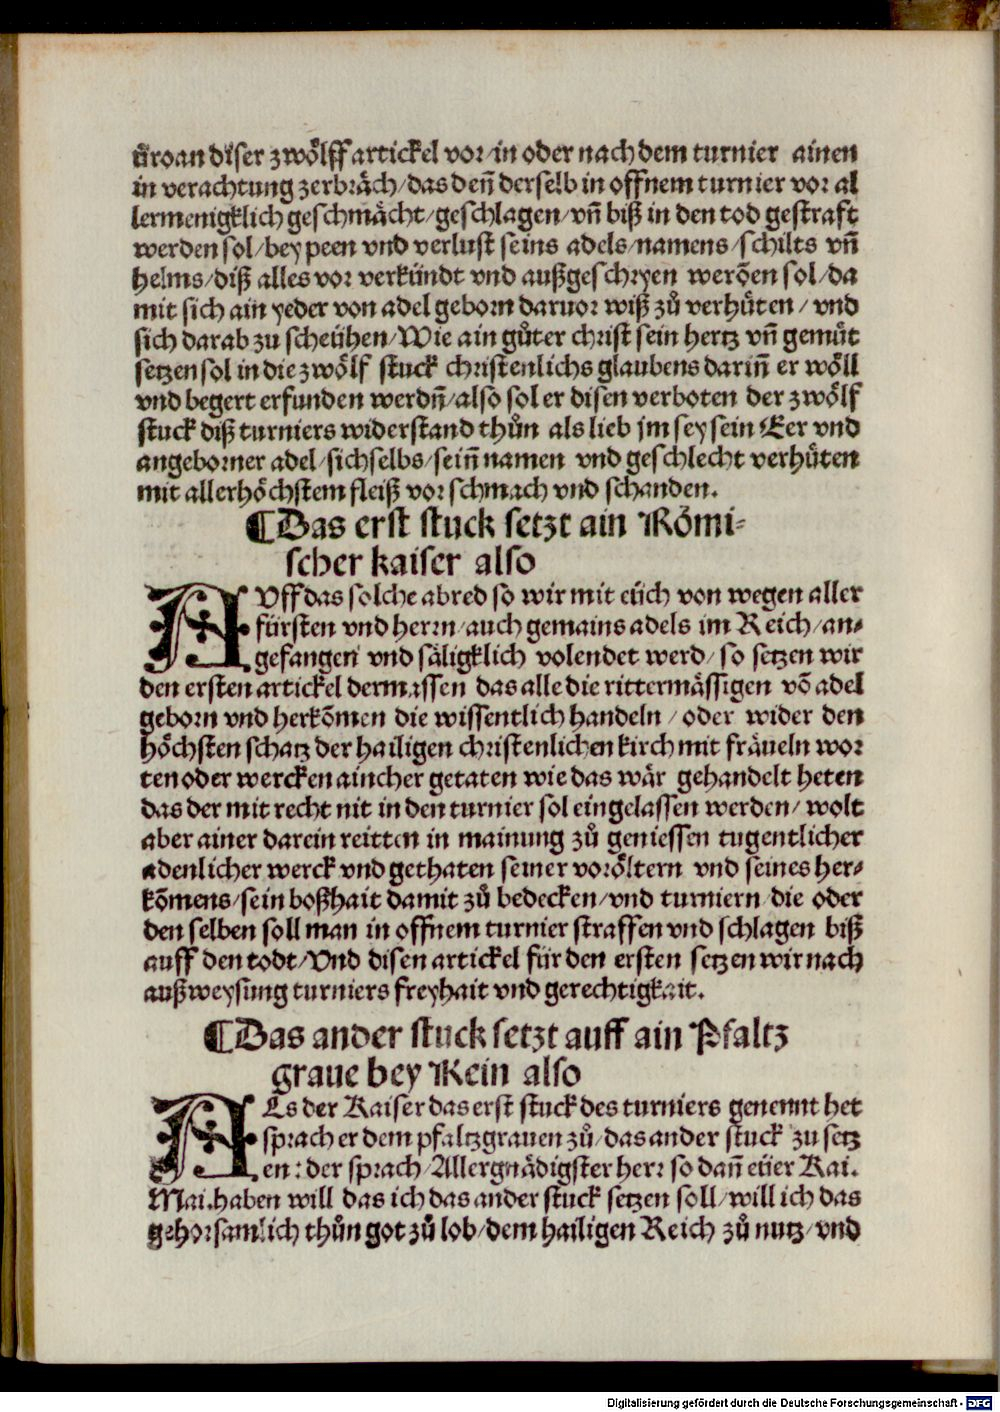 diser zwoͤlff artickel vor/in oder nach dem turnier ainen
in verachtung zerbraͤch/das deñ derselb in offnem turnier vor al
lermenigklich geschmaͤcht/geschlagen/vñ biß in den tod gestraft
werden sol/bey peen vnd verlust seins adels/namens/schilts vñ
helms/diß alles vor verkündt vnd außgeschryen werdẽn sol/da
mit sich ain yeder von adel geborn daruor wiß zů verhüten/vnd
sich darab zu scheühen/Wie ain gůter christ sein hertz vñ gemüt
setzen sol in die zwoͤlf stuck christenlichs glaubens dariñ er woͤll
vnd begert erfunden werdñ/also sol er disen verboten der zwoͤlf
stuck diß turniers widerstand thůn als lieb jm sey sein Eer vnd
angeborner adel/sichselbs/seiñ namen vnd geschlecht verhüten
mit allerhoͤchstem fleiß vor schmach vnd schanden.
¶Das erst stuck setzt ain Roͤmi-
scher kaiser also
AVff das solche abred so wir mit eüch von wegen aller
fürsten vnd herrn/auch gemains adels im Reich/an-
gefangen vnd saͤligklich volendet werd/so setzen wir
den ersten artickel dermassen das alle die rittermaͤssigen võ adel
geborn vnd herkõmen die wissentlich handeln/oder wider den
hoͤchsten schatz der hailigen christenlichen kirch mit fraͤueln wor
ten oder wercken aincher getaten wie das waͤr gehandelt heten
das der mit recht nit in den turnier sol eingelassen werden/wolt
aber ainer darein reitten in mainung zů geniessen tugentlicher
adenlicher werck vnd gethaten seiner voroͤltern vnd seines her-
kõmens/sein boßhait damit zů bedecken/vnd turniern/die oder
den selben soll man in offnem turnier straffen vnd schlagen biß
auff den todt/Vnd disen artickel für den ersten setzen wir nach
außweysung turniers freyhait vnd gerechtigkait.
¶Das ander stuck setzt auff ain Pfaltz
graue bey Rein also
ALs der Kaiser das erst stuck des turniers genennt het
sprach er dem pfaltzgrauen zů/das ander stuck zu setz
en: der sprach/Allergnaͤdigster herr so dañ eüer Kai.
Mai.haben will das ich das ander stuck setzen soll/will ich das
gehorsamlich thůn got zů lob/dem hailigen Reich zů nutz/vnd
Digitalisierung gefördert durch die Deutsche Forschungsgemeinschaft - DFG